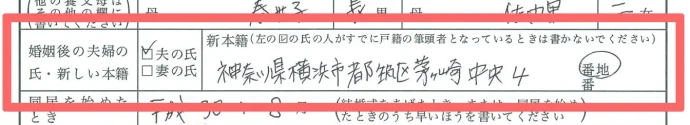 (他の養父母は
その他の欄に
書いてください)
母
長男
母
二女
婚姻後の夫婦の
氏・新しい本籍
☑夫の氏
□妻の氏
新本籍(左の☑の氏の人がすでに戸籍の筆頭者となっているときは書かないでください)
神奈川県横浜市都筑区茅ヶ崎中央4
番地
番
同居を始めた
とき
平成30年8月
(結婚式をあげたとき、または、同居を始め
たときのうち早いほうを書いてください)